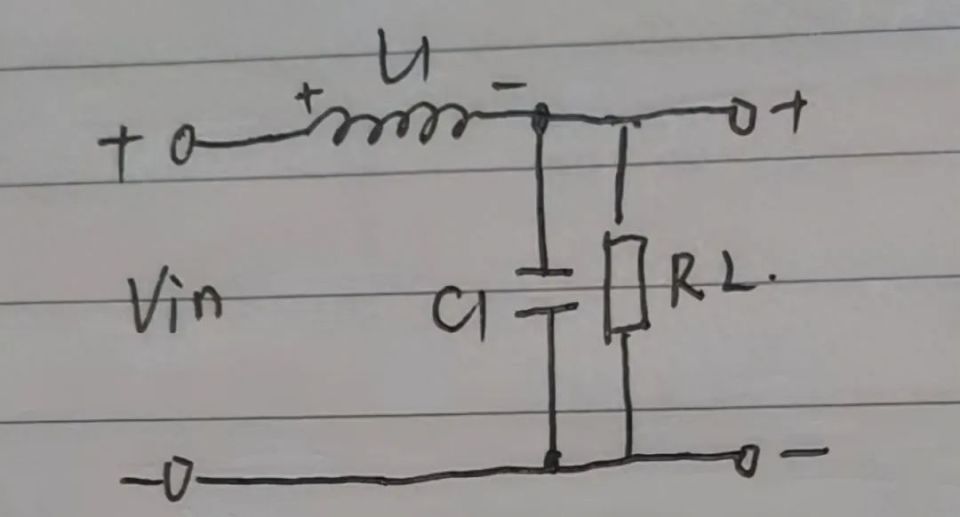 L1
+ -
+ +
Vin C1 RL.
- -